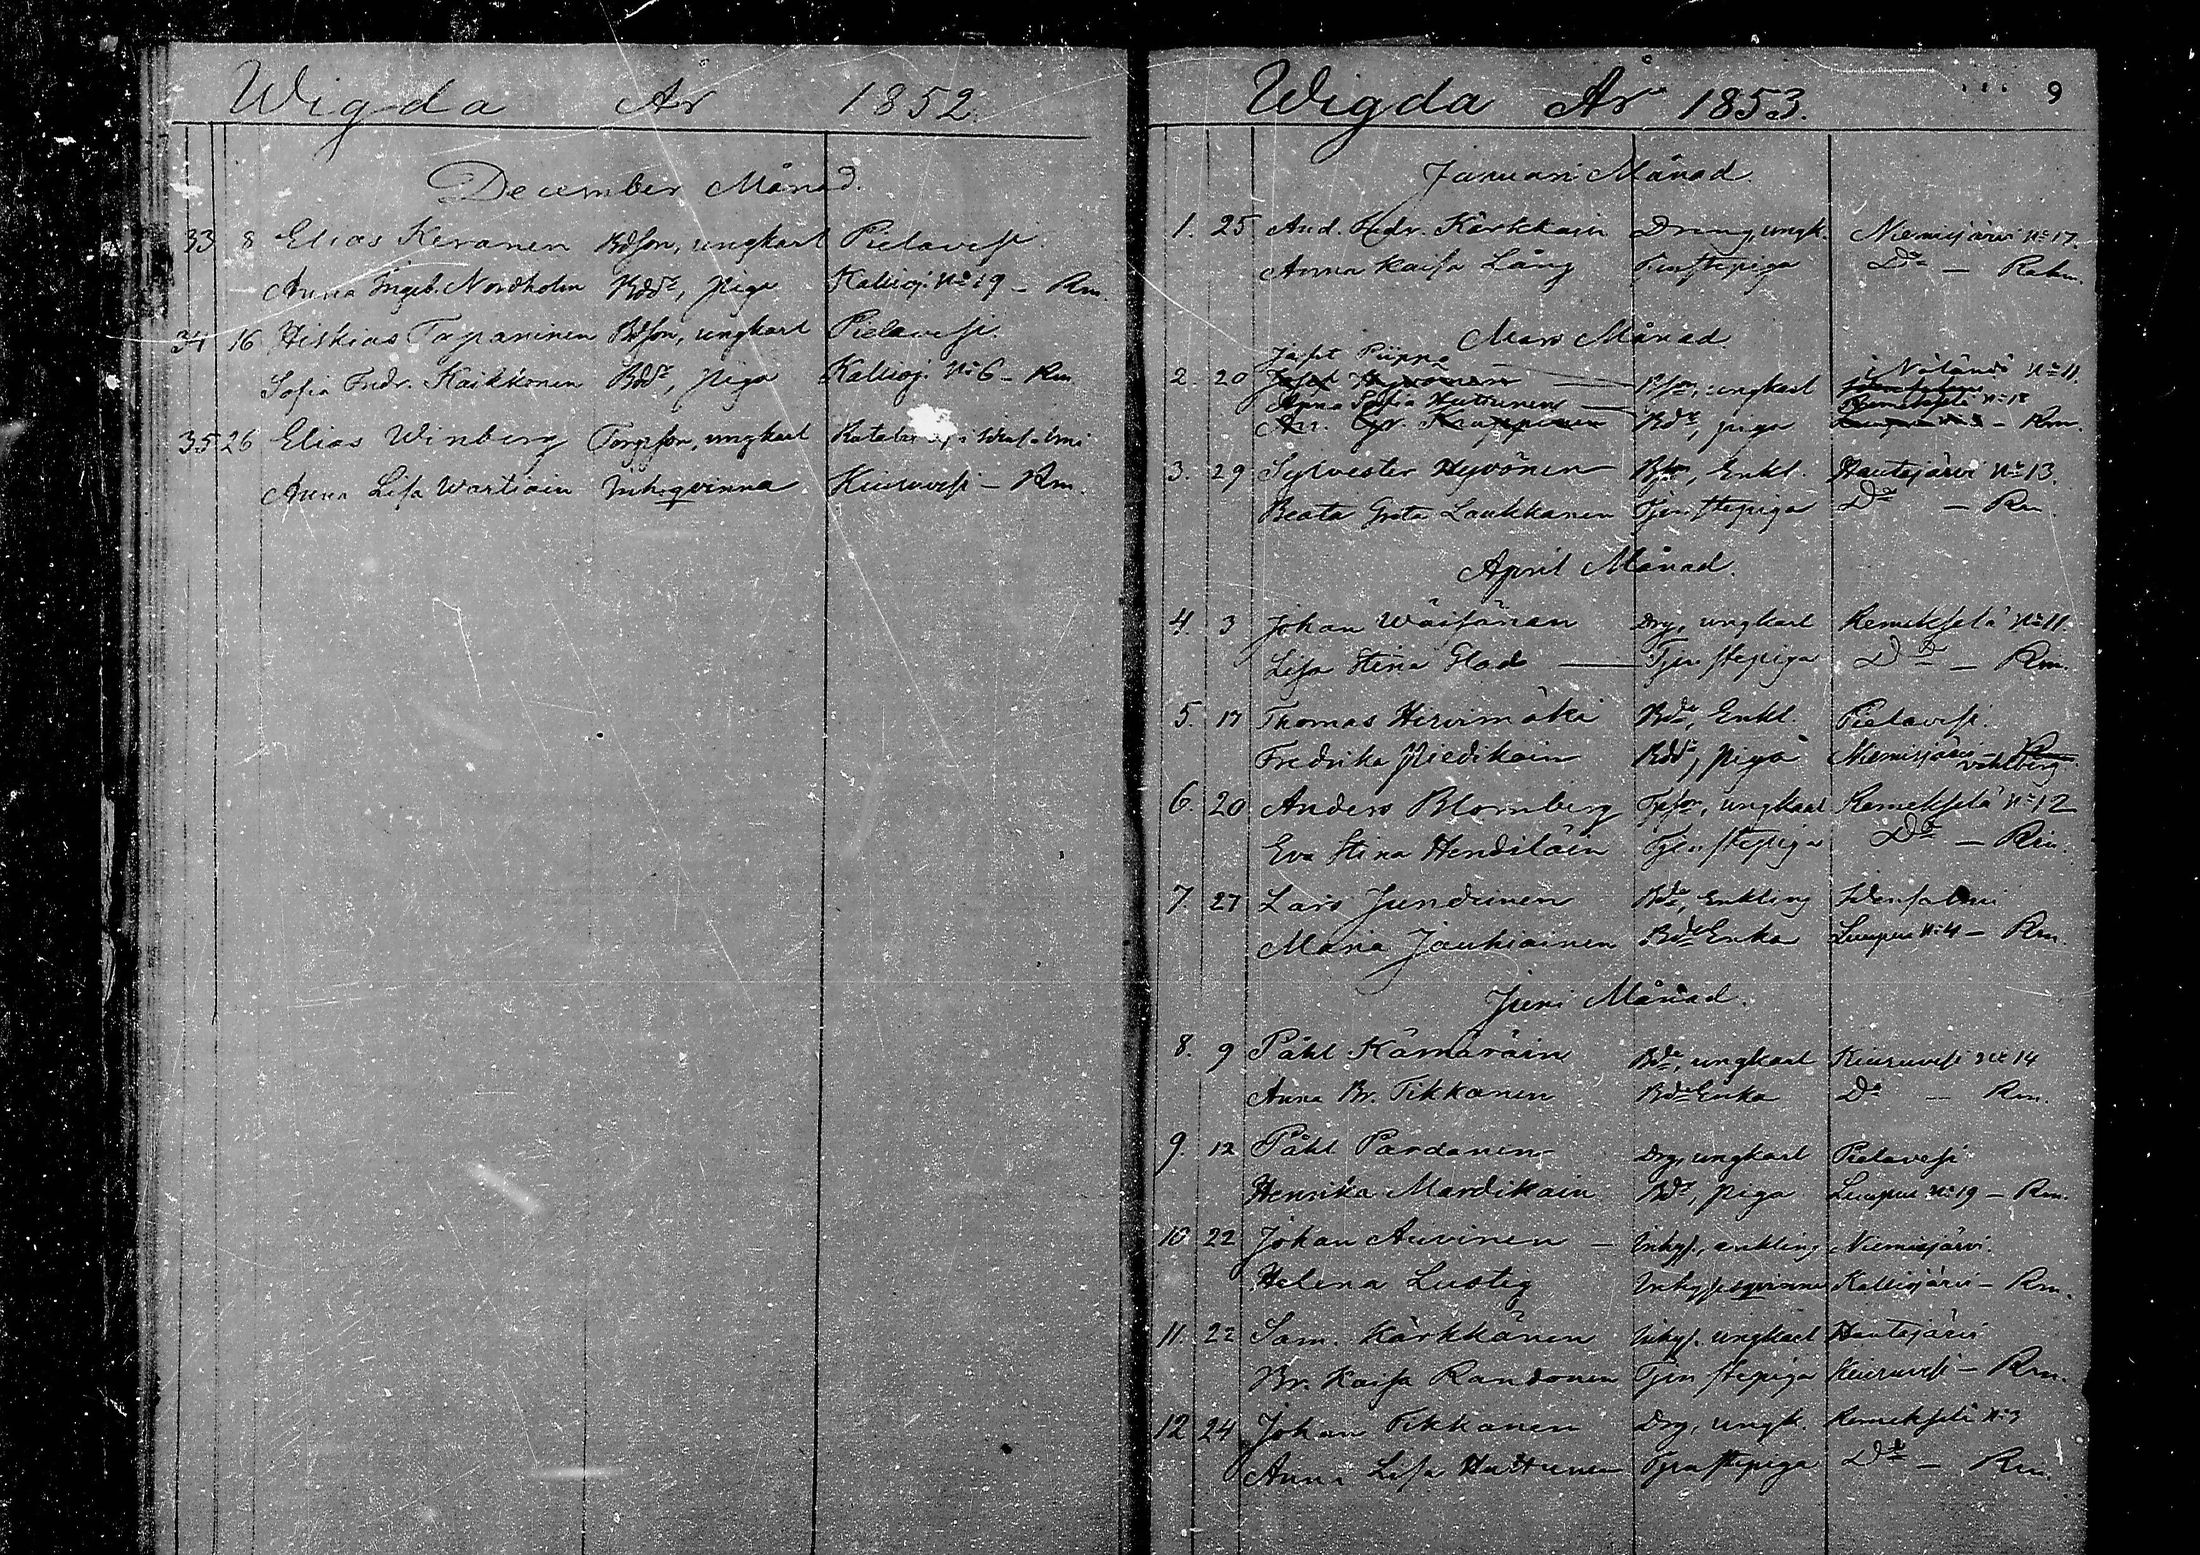 Wigda År 1852.
December Månad.
33 8 Elias Keranen Bdson, ungkarl Pielavesi.
Anna Ingeb. Nordholm Bddr, piga Kallioj. No 19 – Rm.
34 16 Hiskias Tapaninen Bdson, ungkarl Pielavesi.
Sofia Fredr. Kaikkonen Bddr, piga Kallioj. No 6 – Rm.
35 26 Elias Winberg Torpson, ungkarl i Idensalmi
Anna Lisa Wartiain Inh.qvinna Kiuruvesi – Rm.
Wigda År 1853.
9
Januari Månad
1. 25 And. Hedr. Kärkkain Dreng, ungk. Niemisjärvi No 17.
Anna Kaisa Lång Tjenstepiga Do –
Mars Månad
Josef Piippo i Näländö No 11.
2. 20 Josef Hyvönen Bson, ungkarl
Anna Sofia Huttunen Remeksela No 18
An. Bdr, piga – Rm.
3. 29 Sylvester Hyvönen Bson, Enkl. Hautajärvi No 13.
Beata Greta Laukkanen Tjenstepiga Do – Rm.
April Månad.
4. 3 Johan Wäisänen Drg, ungkarl Remekselä No 11.
Lisa Stina Glad Tjenstepiga Do – Rm.
5. 17 Thomas Hirvimäki Bde, Enkl. Pielavesi.
Fredrika Piedikäin Bddr, piga Niemisjärvi – Rm.
Vahlberg
6. 20 Anders Blomberg Tpson, ungkarl Remekselä No 12
Eva Stina Hendiläin Tjenstepiga Do – Rm.
7. 27 Lars Jundunen Bde, Enkling Idensalmi
Maria Jauhiainen Bde Enka Luupu No 4 – Rm.
Juni Månad.
8. 9 Påhl Kämäräin Bde, ungkarl Kiuruvesi No 14
Anna Br. Tikkanen Bde Enka Do – Rm.
9. 12 Påhl Pardanen Drg, ungkarl Pielavesi
Henrika Mardikain Bdr, piga Luupu No 19 – Rm.
10 22 Johan Auvinen – Inhys., enkling Niemisjärvi.
Helena Lustig Inhysesqvinna Kalliojärvi – Rm.
11. 22 Sam. Kärkkänen Inhys. ungkarl Hautajärvi
Br. Kaisa Randonen Tjenstepiga Kiuruvesi – Rm.
12 24 Johan Tikkanen Drg, ungk. Remekselä No 3
Anna Lisa Huttunen Tjenstepiga Do – Rm.